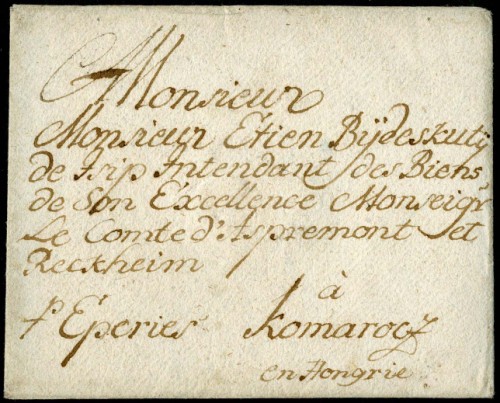 Monsieur
Monsieur Etien Bÿdeskutÿ
de Isip Intendant des Biens
de Son Excellence Monseigr
Le Comte d'Aspremont et
Reckheim
à
p Éperies Komarocz
en Hongrie